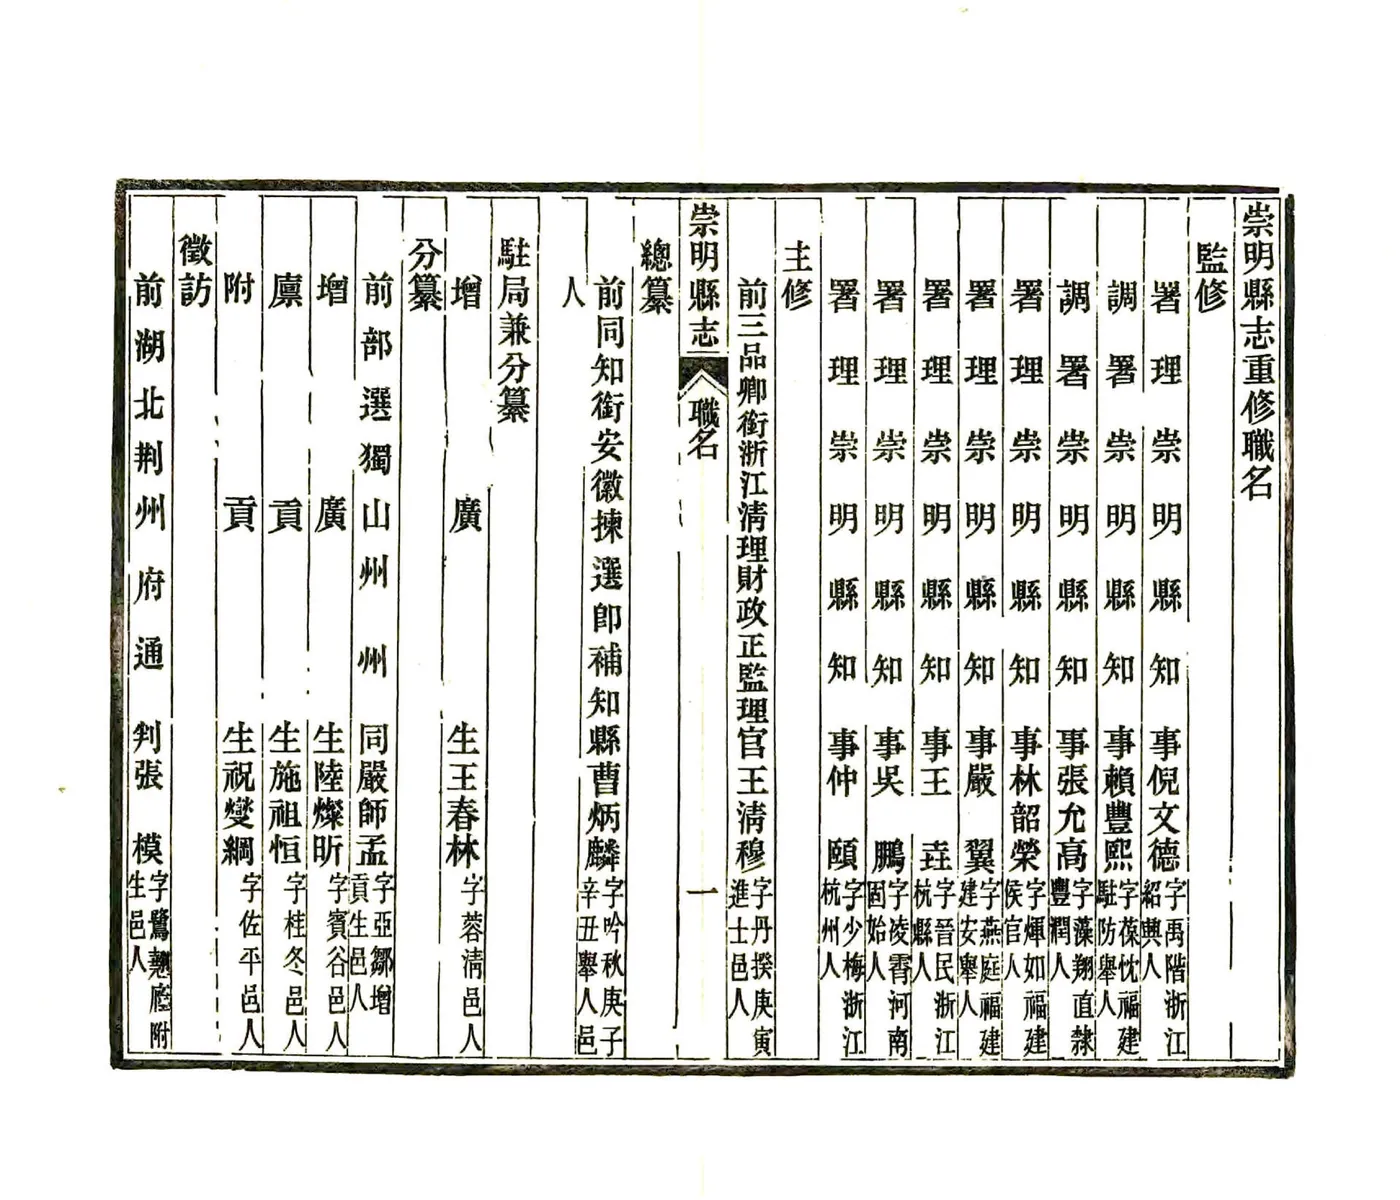 崇明縣志重修職名
監修
署理崇明縣知事倪文德字禹階浙江紹興人
調署崇明縣知事賴豐熙字葆忱福建駐防舉人
調署崇明縣知事張允高字藻翔直隸豐潤人
署理崇明縣知事林韶榮字煇如福建侯官人
署理崇明縣知事嚴翼字燕庭福建建安舉人
署理崇明縣知事王垚字晉民浙江杭縣人
署理崇明縣知事吳鵬字凌霄河南固始人
署理崇明縣知事仲頤字少梅浙江杭州人
主修
前三品卿銜浙江清理財政正監理官王清穆字丹揆庚寅進士邑人
崇明縣志 職名 一
總纂
前同知銜安徽揀選卽補知縣曹炳麟字吟秋庚子辛丑舉人邑
人
駐局兼分纂
增廣生王春林字蓉清邑人
分纂
前部選獨山州州同嚴師孟字亞鄒增貢生邑人
增廣生陸燦昕字賓谷邑人
廩貢生施祖恒字桂冬邑人
附貢生祝燮綱字佐平邑人
徵訪
前湖北荆州府通判張模字鷺翹廕附生邑人